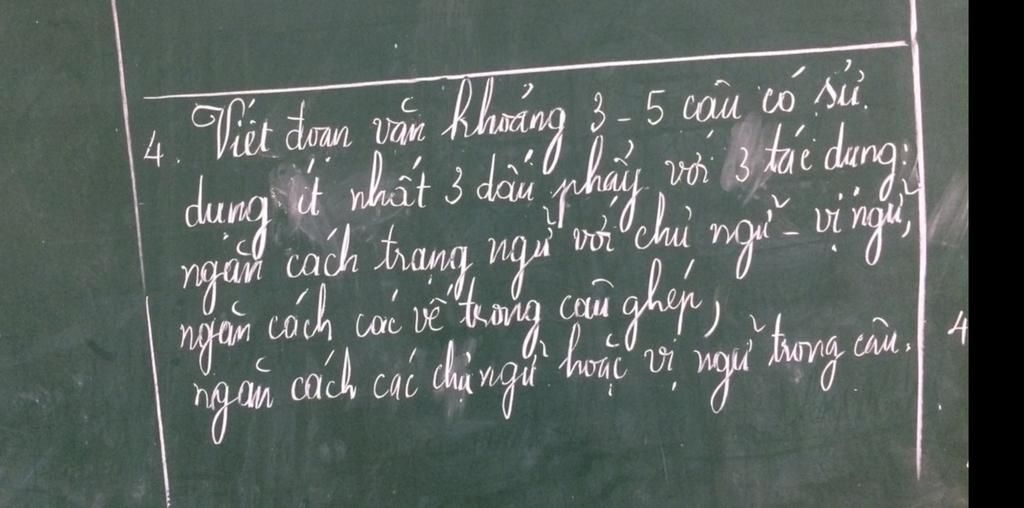 4. Viết đoạn văn khoảng 3 - 5 câu có sử
dụng ít nhất 3 dấu phẩy với 3 tác dụng:
ngăn cách trạng ngữ với chủ ngữ - vị ngữ,
ngăn cách các vế trong câu ghép,
ngăn cách các chủ ngữ hoặc vị ngữ trong câu.
4